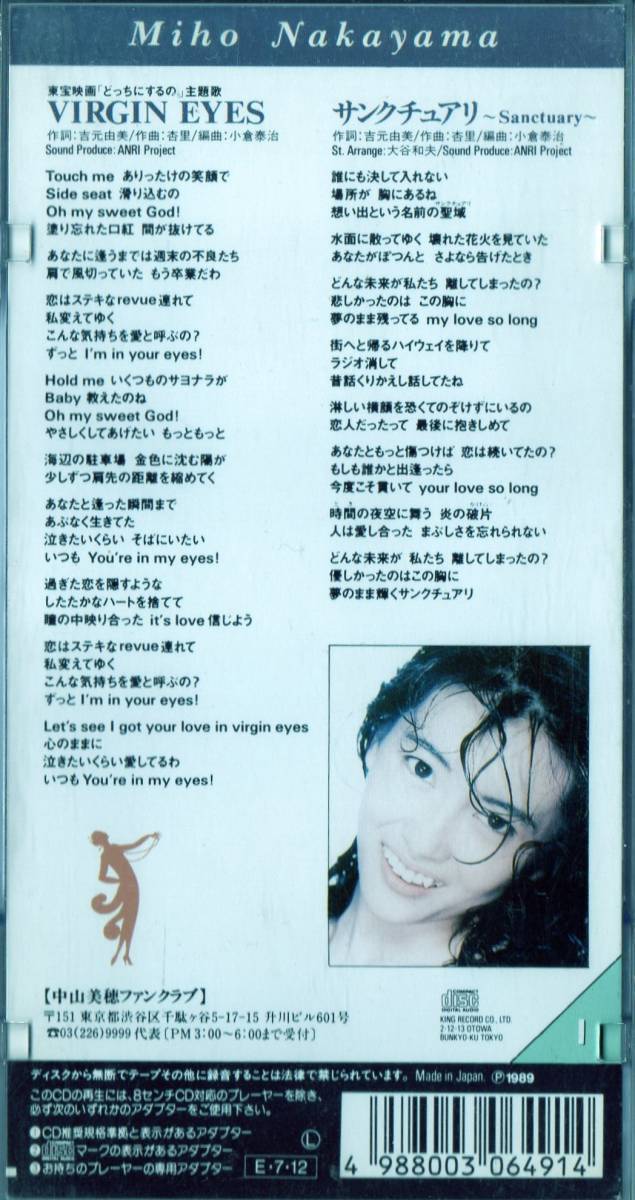 Miho Nakayama
東宝映画「どっちにするの」主題歌
VIRGIN EYES
作詞:吉元由美/作曲:杏里/編曲:小倉泰治
Sound Produce: ANRI Project
Touch me ありったけの笑顔で
Side seat 滑り込むの
Oh my sweet God!
塗り忘れた口紅 間が抜けてる
あなたに逢うまでは週末の不良たち
肩で風切っていた もう卒業だわ
恋はステキなrevue連れて
私変えてゆく
こんな気持ちを愛と呼ぶの?
ずっと I'm in your eyes!
Hold me いくつものサヨナラが
Baby 教えたのね
Oh my sweet God!
やさしくしてあげたい もっともっと
海辺の駐車場 金色に沈む陽が
少しずつ肩先の距離を縮めてく
あなたと逢った瞬間まで
あぶなく生きてた
泣きたいくらい そばにいたい
いつも You're in my eyes!
過ぎた恋を隠すような
したたかなハートを捨てて
瞳の中映り合った it's love 信じよう
恋はステキなrevue連れて
私変えてゆく
こんな気持ちを愛と呼ぶの?
ずっと I'm in your eyes!
Let's see I got your love in virgin eyes
心のままに
泣きたいくらい愛してるわ
いつも You're in my eyes!
サンクチュアリ ～Sanctuary～
作詞:吉元由美/作曲:杏里/編曲:小倉泰治
St. Arrange:大谷和夫/Sound Produce: ANRI Project
誰にも決して入れない
場所が 胸にあるね
サンクチュアリ
想い出という名前の聖域
水面に散ってゆく 壊れた花火を見ていた
あなたがぽつんと さよなら告げたとき
どんな未来が私たち 離してしまったの?
悲しかったのは この胸に
夢のまま残ってる my love so long
街へと帰るハイウェイを降りて
ラジオ消して
昔話くりかえし話してたね
淋しい横顔を恐くてのぞけずにいるの
恋人だったって 最後に抱きしめて
あなたともっと傷つけば 恋は続いてたの?
もしも誰かと出逢ったら
今度こそ貫いて your love so long
時間の夜空に舞う 炎の破片
人は愛し合った まぶしさを忘れられない
どんな未来が 私たち 離してしまったの?
優しかったのはこの胸に
夢のまま輝くサンクチュアリ
【中山美穂ファンクラブ】
〒151 東京都渋谷区千駄ヶ谷5-17-15 升川ビル601号
☎03(226)9999 代表〔PM 3:00～6:00まで受付〕
COMPACT
disc
DIGITAL AUDIO
KING RECORD CO., LTD.
2-12-13 OTOWA
BUNKYO-KU TOKYO
ディスクから無断でテープその他に録音することは法律で禁じられています。 Made in Japan. Ⓟ1989
このCDの再生には、8センチCD対応のプレーヤーを除き、
必ず次のいずれかのアダプターをご使用下さい。
❶CD推奨規格準拠と表示があるアダプター
❷disc マークの表示があるアダプター
❸お持ちのプレーヤーの専用アダプター
Ⓛ
E・7・12
4 988003 064914